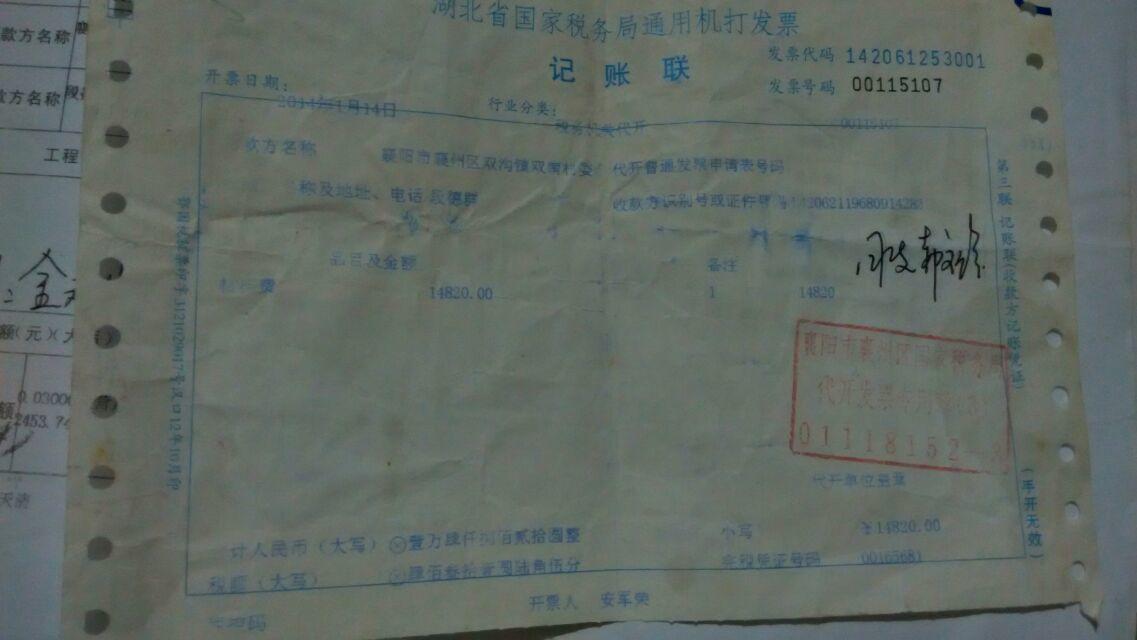 湖北省国家税务局通用机打发票
记账联
发票代码 142061253001
发票号码 00115107
开票日期：
2014年1月14日
行业分类：
税务机关代开
00115107
款方名称
襄阳市襄州区双沟镇双南村委
代开普通发票申请表号码
称及地址、电话 段德群
收款方识别号或证件号
品目及金额
备注
费
14820.00
1
14820
襄阳市襄州区国家税务局
代开发票专用章
01118152
代开单位盖章
计人民币（大写）
壹万肆仟捌佰贰拾圆整
小写
￥14820.00
税额（大写）
肆佰叁拾壹圆陆角伍分
完税凭证号码
00165681
开票人 安军荣
第三联 记账联（收款方记账凭证）
（手开无效）
款方名称
款方名称
工程
金
额（元）（大
0.0300
额
2453.74